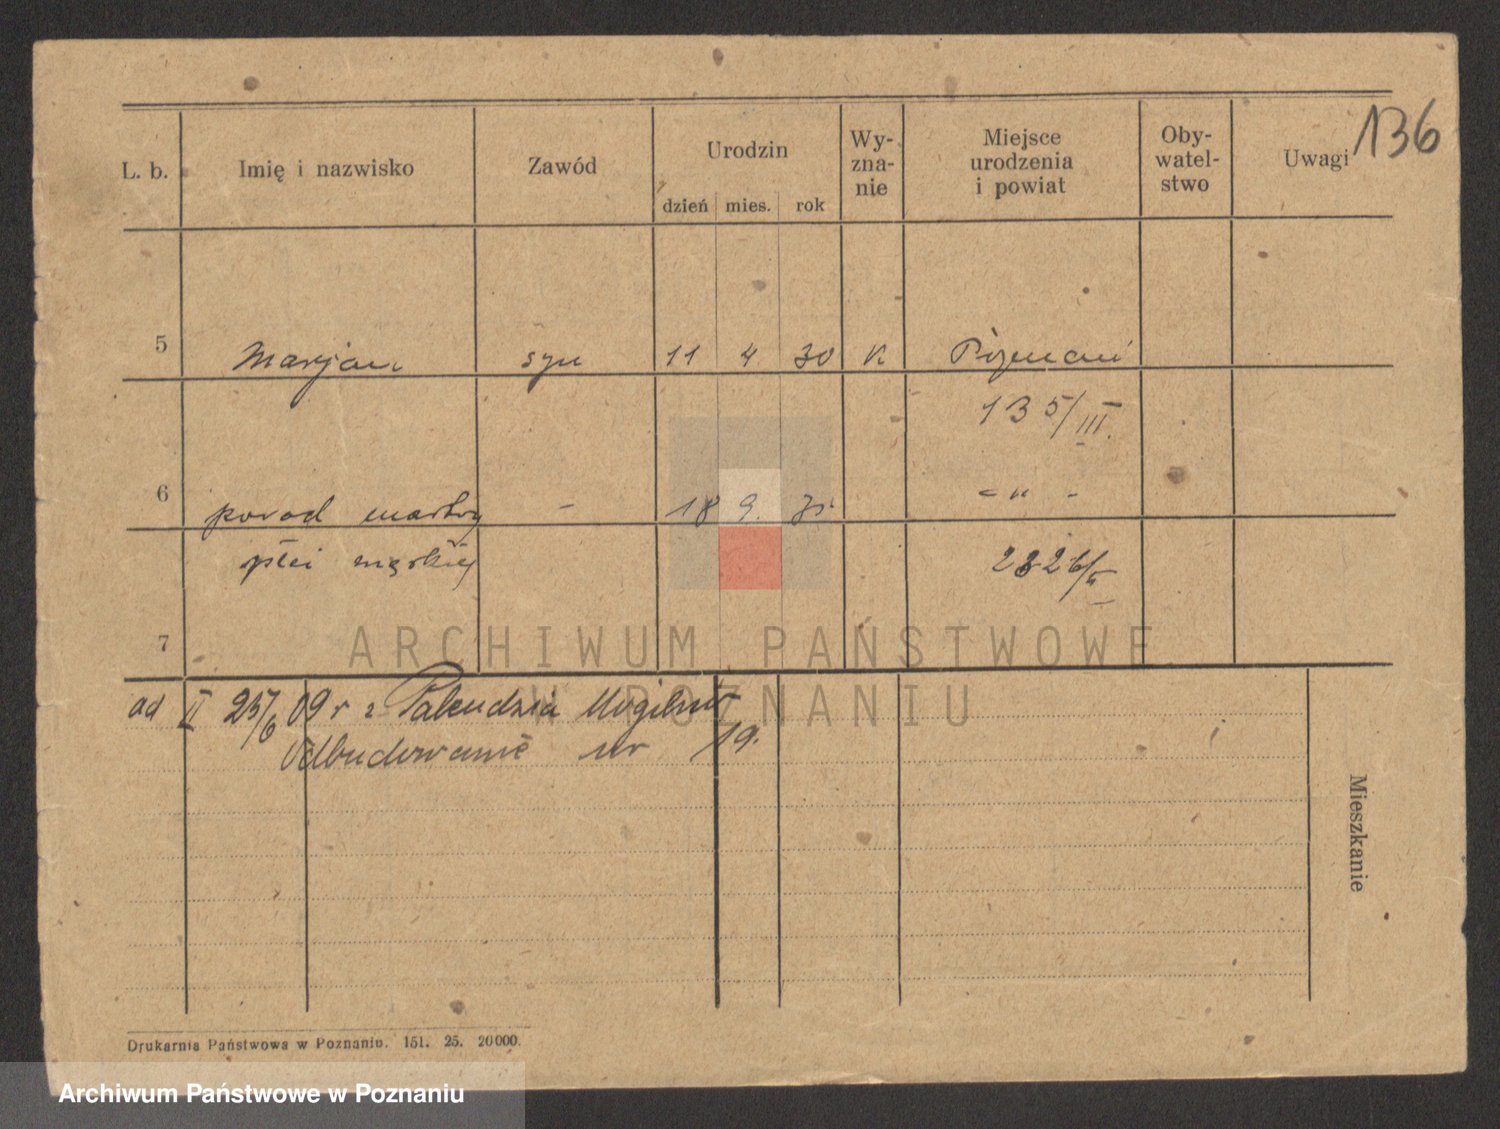 136
L. b. Imię i nazwisko Zawód Urodzin dzień mies. rok Wy-zna-nie Miejsce urodzenia i powiat Oby-watel-stwo Uwagi
5 Marjan syn 11 4 30 K Poznań
135/III.
6 porod martwy - 18 9. - " -
płci męskiej 2826/II
7
ARCHIWUM PAŃSTWOWE
W POZNANIU
ad II 25/6 09 r z Palendzia Mogilno
Odbudowanie nr 19.
Mieszkanie
Drukarnia Państwowa w Poznaniu. 151. 25. 20000.
Archiwum Państwowe w Poznaniu